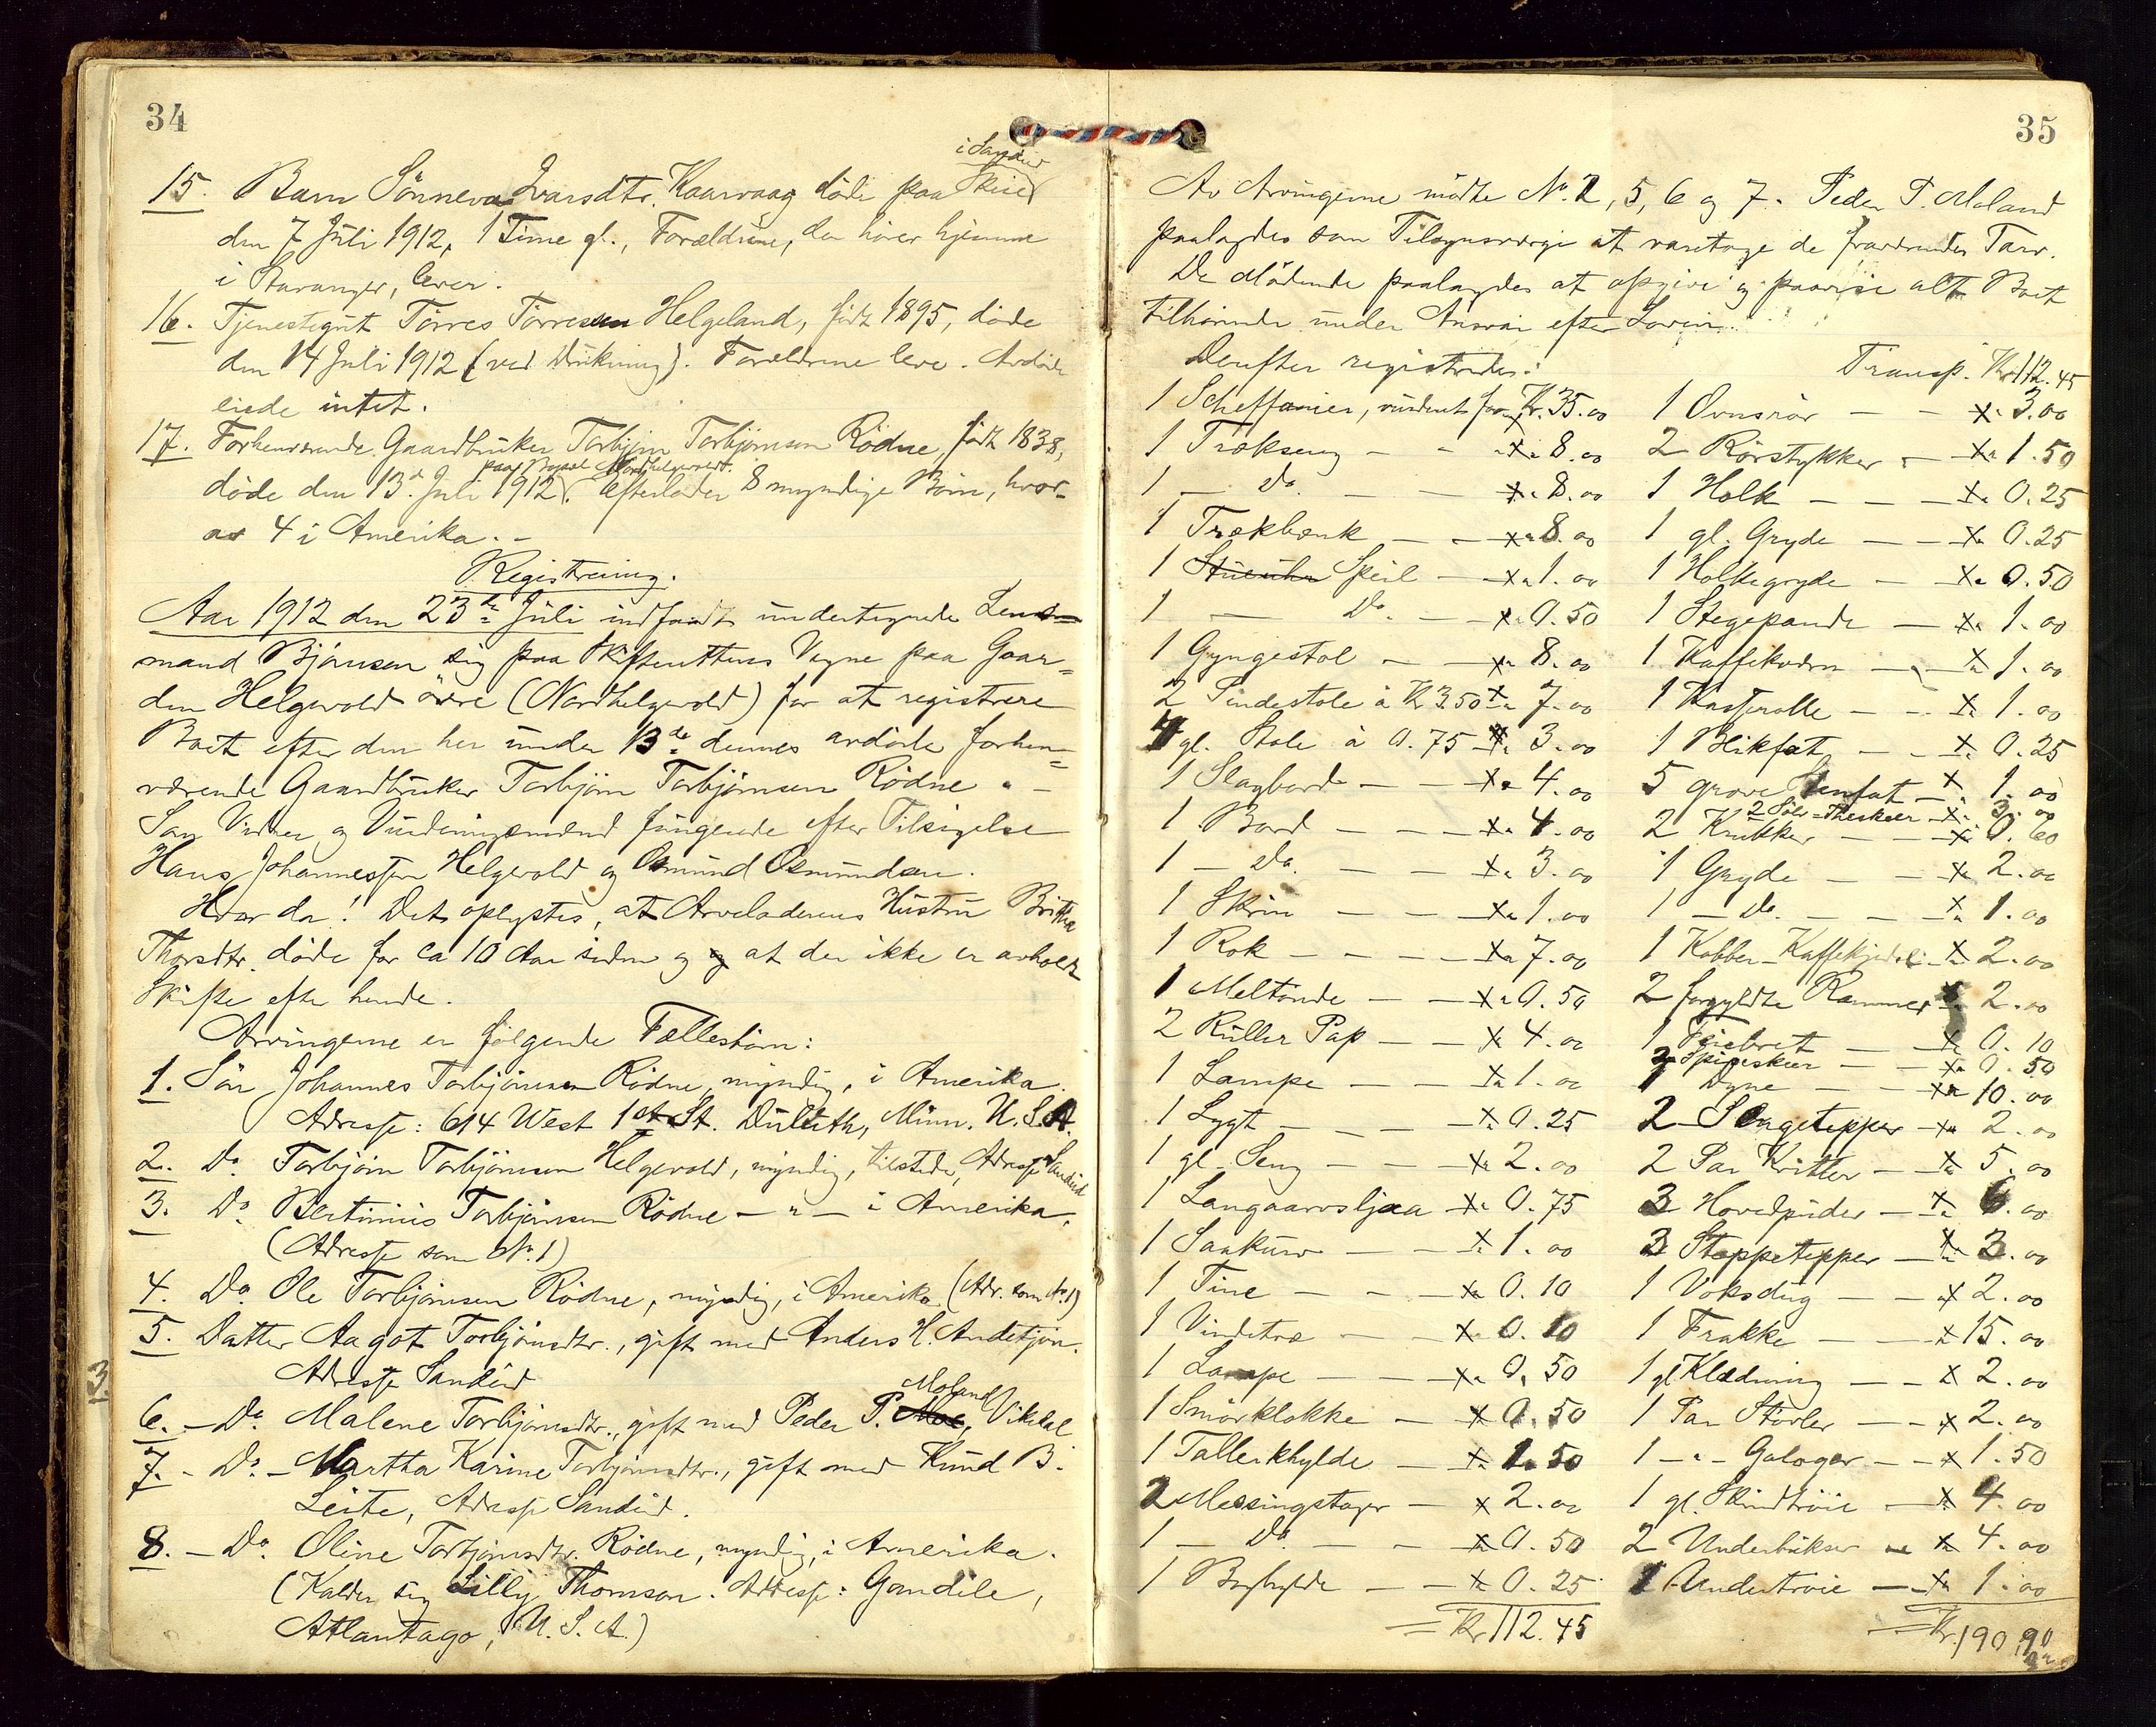 34
15. Barn Sønneva Ivarsdtr. Kaarvaag døde paa Skeie i Sandeid
den 7 Juli 1912, 1 Time gl., Forældrene, der hører hjemme
i Stavanger, lever.
16. Tjenestegut Tørres Tørresen Helgeland, født 1895, døde
den 14 Juli 1912 (ved Drukning). Forældrene lever. Avdøde
eiede intet.
17. Forhenværende Gaardbruker Torbjørn Torbjørnsen Rødne, født 1838,
paa Nordhelgevold.
døde den 13de Juli 1912. Efterlader 8 myndige Børn, hvor-
av 4 i Amerika. -
Registrering.
Aar 1912 den 23de Juli indfandt undertegnede Lens-
mand Bjønsen sig paa Skifterettens Vegne paa Gaar-
den Helgevold øvre (Nordhelgevold) for at registrere
Boet efter den her under 13de dennes avdøde forhen-
værende Gaardbruker Torbjørn Torbjørnsen Rødne. -
Som Vidner og Vurderingsmænd fungerede efter Tilsigelse
Hans Johannessen Helgevold og Osmund Osmundsen.
Hvor da! Det oplystes, at Arveladerens Hustru Britha
Thorsdtr. døde for ca 10 Aar siden og at der ikke er avholdt
Skifte efter hende.
Arvingerne er følgende Fællesbørn:
1. Søn Johannes Torbjørnsen Rødne, myndig, i Amerika.
Adresse: 614 West 1st St. Duluth, Minn. U.S.A.
2. Do Torbjørn Torbjørnsen Helgevold, myndig, tilstede, Adresse Sandeid
3. Do Bertinius Torbjørnsen Rødne - " - i Amerika.
(Adresse som No. 1)
4. Do. Ole Torbjørnsen Rødne, myndig, i Amerika (Adr. som No. 1)
5. Datter Aagot Torbjørnsdtr., gift med Anders H.
Adresse Sandeid
6. - Do. Malene Torbjørnsdtr., gift med Peder P. Moland, Vikedal
7. - Do. - Martha Karine Torbjørnsdtr., gift med Knud B.
Leite, Adresse Sandeid.
8. - Do. Oline Torbjørnsdtr. Rødne, myndig, i Amerika.
(Kalder sig Lilly Thomson. Adresse: Gandele,
Atlantago, U.S.A.)
3.
35
Av Arvingerne mødte No. 2, 5, 6 og 7. Peder P. Moland
paalagdes som Tilsynsværge at varetage de fraværendes Tarv.
De Mødende paalagdes at opgive og paavise alt Boet
tilhørende under Ansvar efter Loven.
Derefter registreredes:
1 Scheffonier, vurderet for Kr. 35.00
1 Trækseng - - " 8.00
1 - Do. - - " 8.00
1 Trækbænk - - " 8.00
1 Stueuhr Speil - " 1.00
1 - Do. - " 0.50
1 Gyngestol - - " 8.00
2 Pindestole à Kr 3.50 " 7.00
4 gl. Stole à 0.75 " 3.00
1 Slagbord - - " 4.00
1 Bord - - - " 4.00
1 - Do. - - " 3.00
1 Skrin - - " 1.00
1 Rok - - - " 7.00
1 Meltønde - - " 0.50
2 Ruller Pap - - " 4.00
1 Lampe - - " 1.00
1 Lygt - - - " 0.25
1 gl. Seng - - " 2.00
1 Langaarvsljaa " 0.75
1 Saakurv - - " 1.00
1 Tine - - - " 0.10
1 Vindetræ - - " 0.10
1 Lampe - - " 0.50
1 Smørklokke - " 0.50
1 Tallerkhylde - " 1.50
2 Messingstager - " 2.00
1 - Do. - - " 0.50
1 Boghylde - - " 0.25
= Kr 112.45
Transp. Kr. 112.45
1 Ovnsrør - - " 3.00
2 Rørstykker - " 1.50
1 Holk - - - " 0.25
1 gl. Gryde - - " 0.25
1 Holkegryde - " 0.50
1 Stegepande - " 1.00
1 Kaffekværn - " 1.00
1 Kasserolle - - " 1.00
1 Blikfat - - " 0.25
5 grove Stenfat - " 1.00
2 Sølv-Theskeer - " 3.00
2 Krukker - - " 0.60
1 Gryde - - " 2.00
1 - Do. - - " 1.00
1 Kobber-Kaffekjedel - " 2.00
2 forgyldte Rammer " 2.00
1 Feiebret - " 0.10
2 Spiseskeer - - " 0.50
1 Dyne - - " 10.00
2 Sengetepper - " 2.00
2 Par Kritler - " 5.00
3 Hovedputer - " 6.00
3 Stoppetepper - " 3.00
1 Voksdug - - " 2.00
1 Frakke - - " 15.00
1 gl Klædning - - " 2.00
1 Par Støvler - - " 2.00
1 - " - Galoger - - " 1.50
1 gl. Skindtrøie - " 4.00
2 Underbukser - " 4.00
1 Undertrøie - - " 1.00
= Kr. 190.90